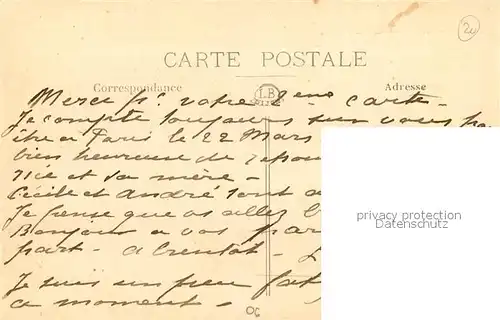 24
CARTE POSTALE
Correspondance
LB
Adresse
Merci pr. votre 2eme carte -
Je compte toujours sur vous po
être à Paris le 22 Mars
bien heureuse de
et sa mère -
Cécile et André sont
Je pense que vs allez
Bonjour à vos par
part - à bientôt -
Je suis un peu fat
ce moment -
privacy protection
Datenschutz